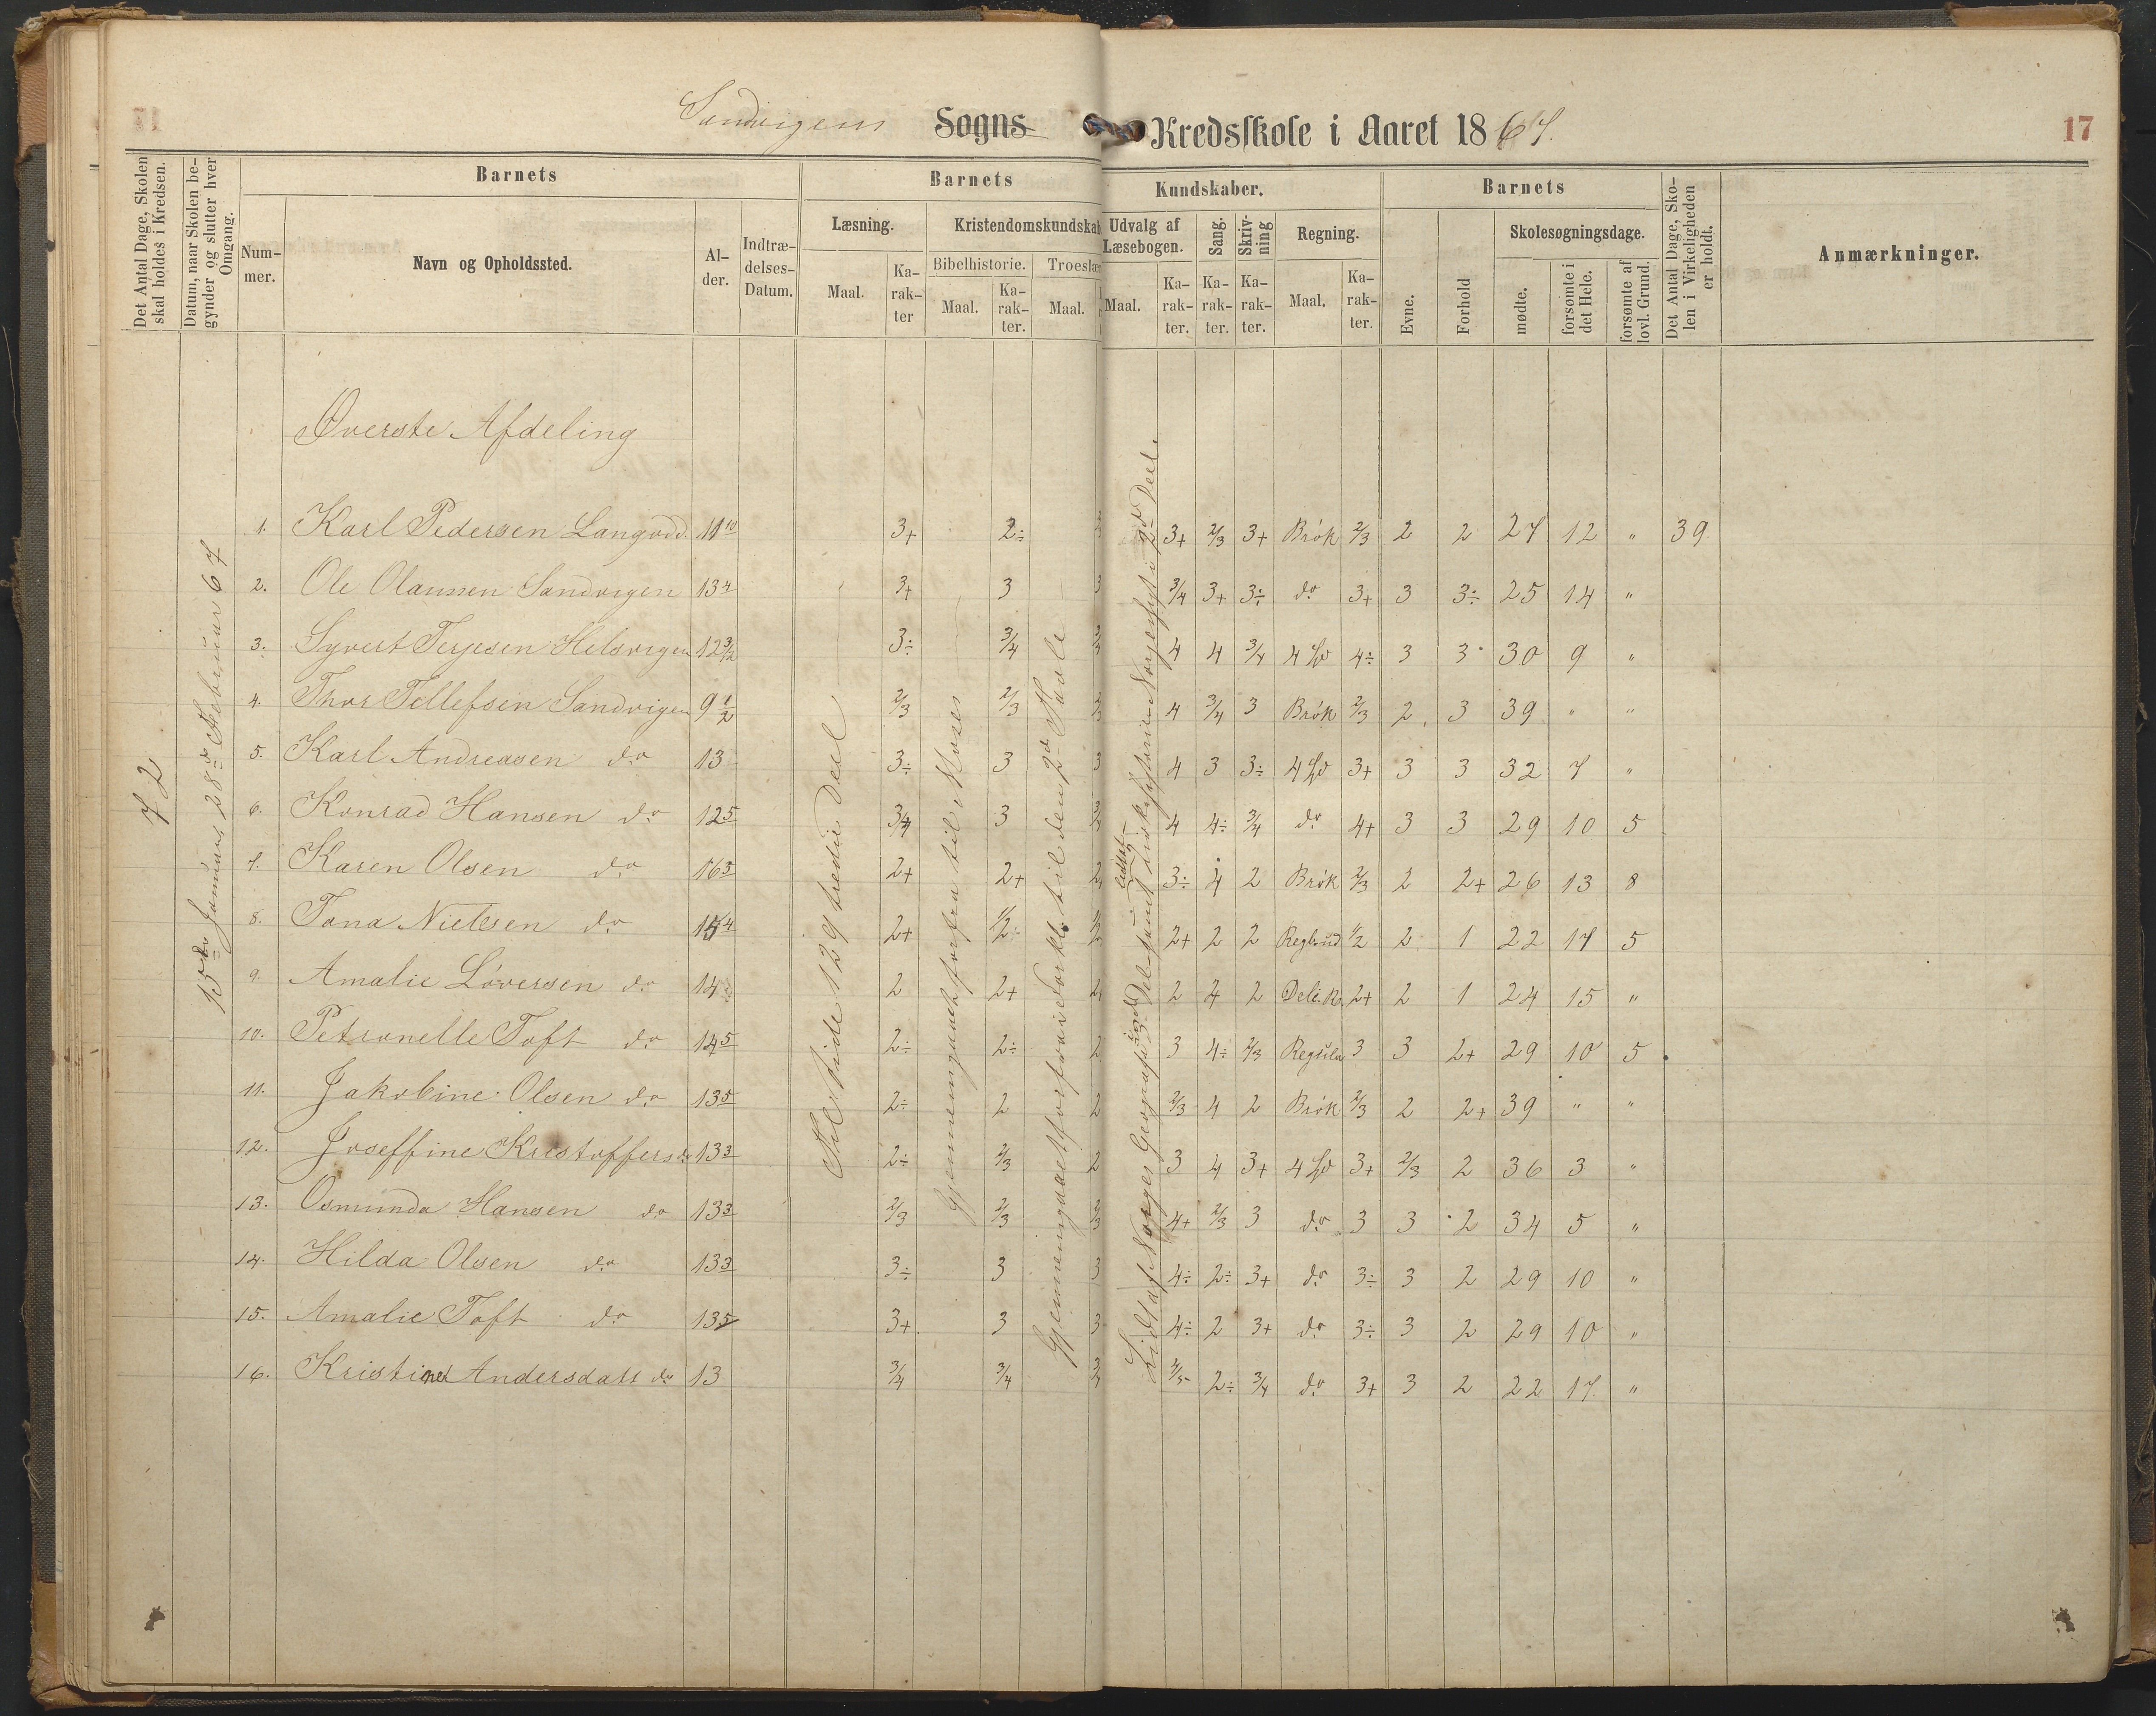 17
Sandvigens Sogns Kredsskole i Aaret 1867.
Det Antal Dage, Skolen skal holdes i Kredsen.
Datum, naar Skolen begynder og slutter hver Omgang.
Barnets
Nummer.
Navn og Opholdssted.
Alder.
Indtrædelses-Datum.
Barnets
Læsning.
Maal.
Karakter
Kristendomskundskab
Bibelhistorie.
Maal.
Karakter.
Troeslær
Maal.
Kundskaber.
Udvalg af Læsebogen.
Maal.
Karakter.
Sang.
Karakter.
Skrivning
Karakter.
Regning.
Maal.
Karakter.
Barnets
Evne.
Forhold
Skolesøgningsdage.
mødte.
forsømte i det Hele.
forsømte af lovl. Grund.
Det Antal Dage, Skolen i Virkeligheden er holdt.
Anmærkninger.
72
15de Januar 28de Februar 67
Øverste Afdeling
Til Side 129 tredie Deel
Gjennemgaaet forfra til Moses
Gjennemgaaet forfra i Forkl. til den 2d
1. Karl Pedersen Langodd. 11 10 3+ 2÷ 3+ 2/3 3+ Brøk 2/3 2 2 27 12 " 39.
2. Ole Olaussen Sandvigen 13 4 3+ 3 3 3/4 3+ 3÷ do 3+ 3 3÷ 25 14 "
3. Syvert Terjesen Helsvigen 12 3/12 3÷ 3/4 4 4 3/4 4 4÷ 3 3 30 9 "
4. Thor Tellefsen Sandvigen 9 1/2 2/3 2/3 4 3/4 3 Brøk 2/3 2 3 39 " "
5. Karl Andreasen do 13 3÷ 3 3 4 3 3÷ 4 3+ 3 3 32 7 "
6. Konrad Hansen do 12 5 3/4 3 4 4÷ 3/4 do 4+ 3 3 29 10 5
7. Karen Olsen do 2+ 2+ 3÷ 4 2 Brøk 2/3 2 2+ 26 13 8
8. Tona Nielsen do 2+ 1/2 2+ 2 2 1/2 2 1 22 17 5
9. Amalie Løversen do 14 2 2+ 2 4 2 2+ 2 1 24 15 "
10. Petronelle Toft do 14 5 2÷ 2÷ 2 3 4÷ 2/3 3 3 2+ 29 10 5
11. Jakobine Olsen do 13 5 2÷ 2 2 2/3 4 2 Brøk 2/3 2 2+ 39 " "
12. Joseffine Kristoffers do 13 3 2÷ 2/3 2 3 4 3+ 4 3+ 2/3 2 36 3 "
13. Osmunda Hansen do 13 3 2/3 2/3 4+ 2/3 3 do 3 3 2 34 5 "
14. Hilda Olsen do 13 3 3÷ 3 3 4÷ 2÷ 3+ do 3÷ 3 2 29 10 "
15. Amalie Toft do 13 5 3+ 3 3 4÷ 2 3+ do 3÷ 3 2 29 10 "
16. Kristine Andersdatt do 13 3/4 3/4 2÷ 3/4 do 3+ 3 2 22 17 "